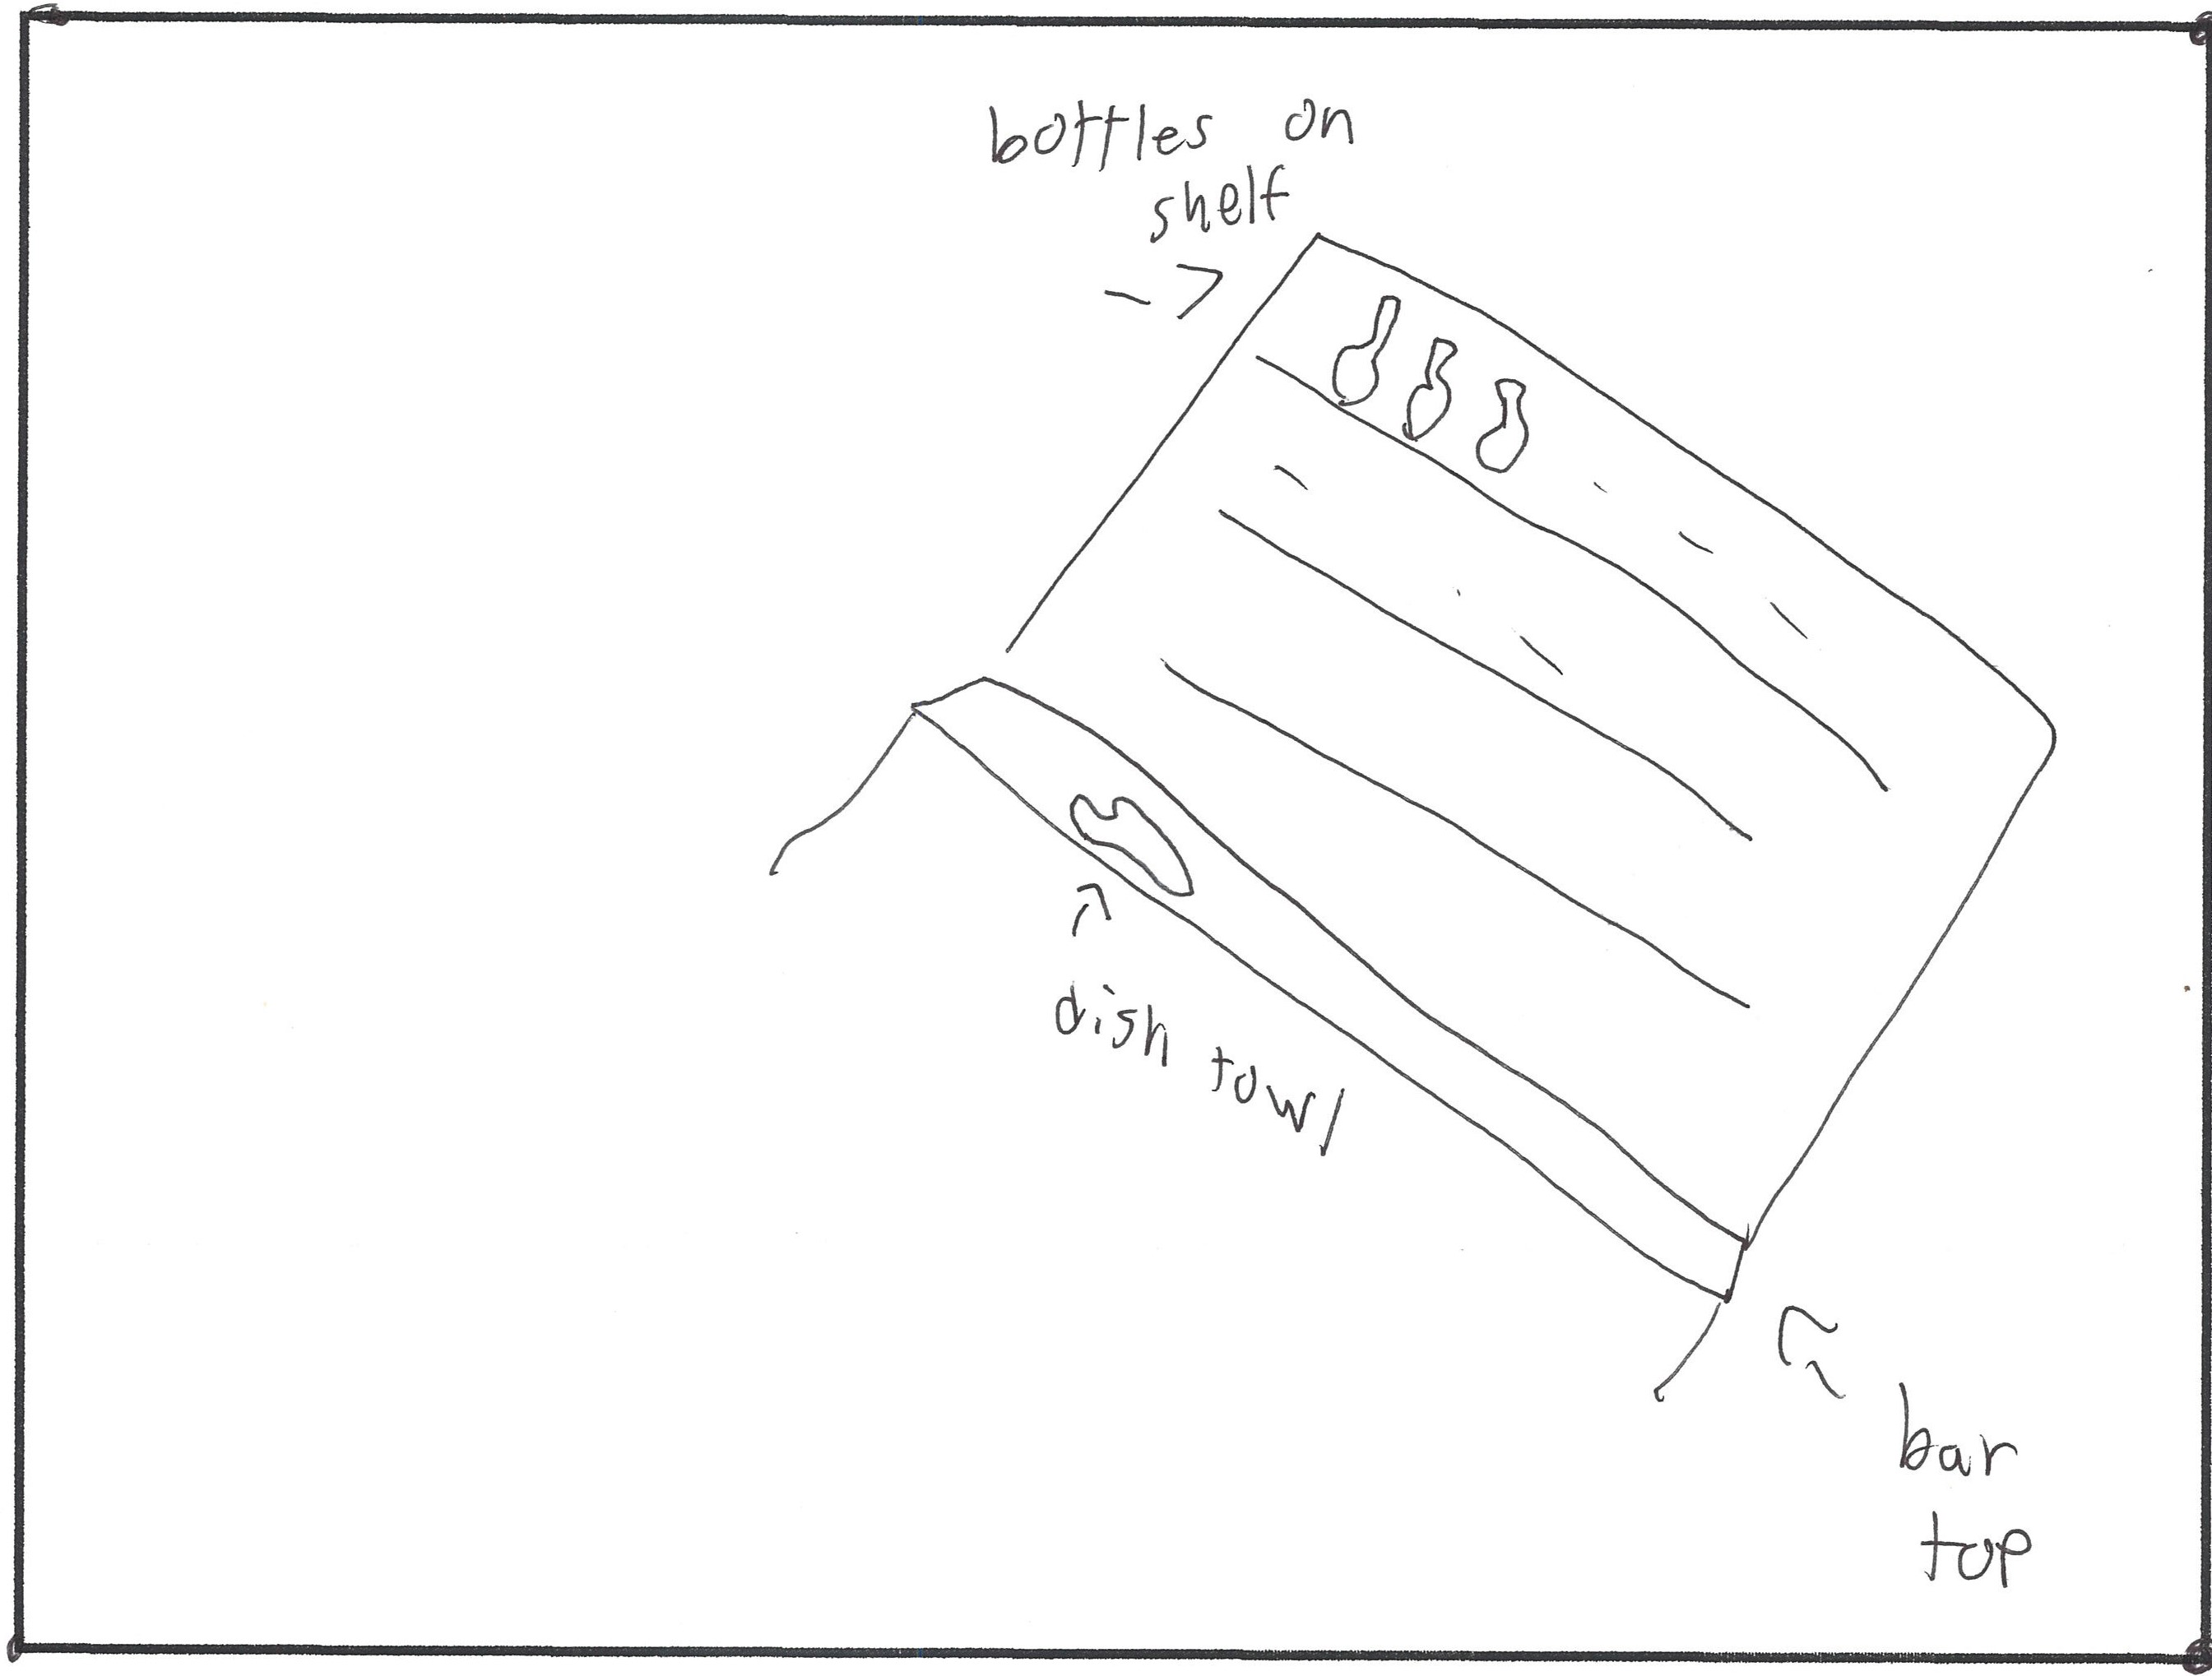 bottles on
shelf
->
dish towl
bar
top